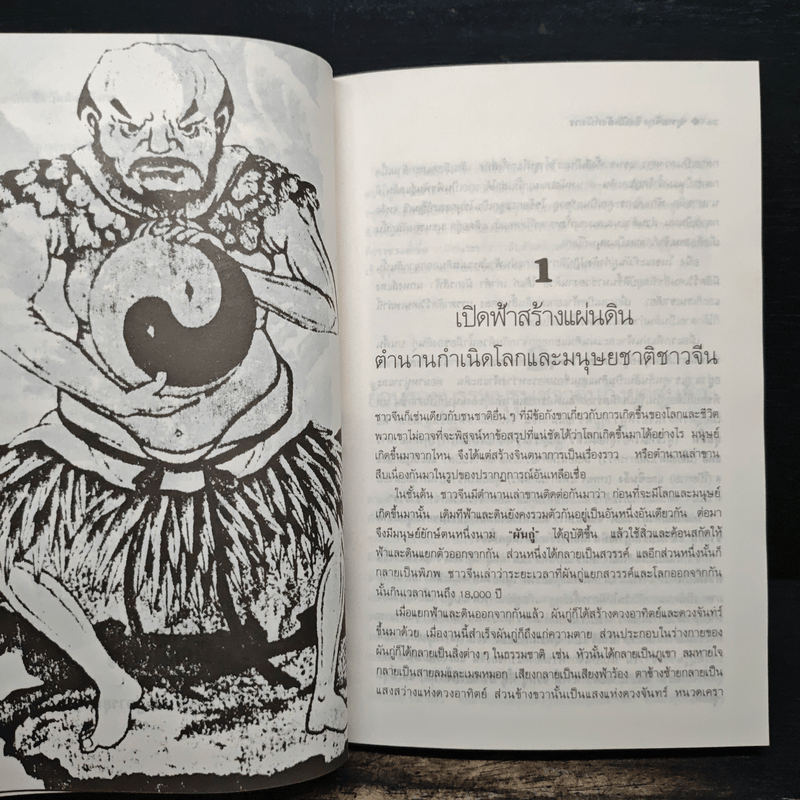 1
เปิดฟ้าสร้างแผ่นดิน
ตำนานกำเนิดโลกและมนุษยชาติชาวจีน
ชาวจีนก็เช่นเดียวกับชนชาติอื่น ๆ ที่มีข้อกังขาเกี่ยวกับการเกิดขึ้นของโลกและชีวิต
พวกเขาไม่อาจที่จะพิสูจน์หาข้อสรุปที่แน่ชัดได้ว่าโลกเกิดขึ้นมาได้อย่างไร มนุษย์
เกิดขึ้นมาจากไหน จึงได้แต่สร้างจินตนาการเป็นเรื่องราว หรือตำนานเล่าขาน
สืบเนื่องกันมาในรูปของปรากฏการณ์อันเหลือเชื่อ
ในชั้นต้น ชาวจีนมีตำนานเล่าขานติดต่อกันมาว่า ก่อนที่จะมีโลกและมนุษย์
เกิดขึ้นมานั้น เดิมทีฟ้าและดินยังคงรวมตัวกันอยู่เป็นอันหนึ่งอันเดียวกัน ต่อมา
จึงมีมนุษย์ยักษ์ตนหนึ่งนาม "ผันกู่" ได้อุบัติขึ้น แล้วใช้สิ่วและค้อนสกัดให้
ฟ้าและดินแยกตัวออกจากกัน ส่วนหนึ่งได้กลายเป็นสวรรค์ แลอีกส่วนหนึ่งนั้นก็
กลายเป็นพิภพ ชาวจีนเล่าว่าระยะเวลาที่ผันกู่แยกสวรรค์และโลกออกจากกัน
นั้นกินเวลานานถึง 18,000 ปี
เมื่อแยกฟ้าและดินออกจากกันแล้ว ผันกู่ก็ได้สร้างดวงอาทิตย์และดวงจันทร์
ขึ้นมาด้วย เมื่องานนี้สำเร็จผันกู่ก็ถึงแก่ความตาย ส่วนประกอบในร่างกายของ
ผันกู่ก็ได้กลายเป็นสิ่งต่าง ๆ ในธรรมชาติ เช่น หัวนั้นได้กลายเป็นภูเขา ลมหายใจ
กลายเป็นสายลมและเมฆหมอก เสียงกลายเป็นเสียงฟ้าร้อง ตาข้างซ้ายกลายเป็น
แสงสว่างแห่งดวงอาทิตย์ ส่วนข้างขวานั้นเป็นแสงแห่งดวงจันทร์ หนวดเครา